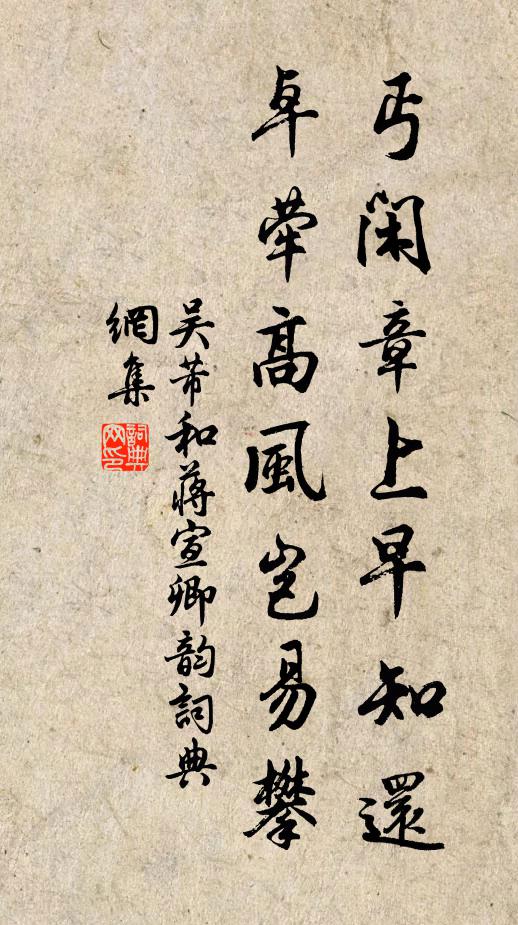 丐閑章上早知還
卓犖高風岂易攀
吴芾和蔣宣卿韵詞典
網集
詞典网印